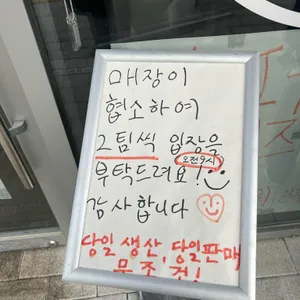 매장이
협소하여
2팀씩 입장을
오전9시
부탁드려요!
감사합니다
당일 생산, 당일판매
무조건!